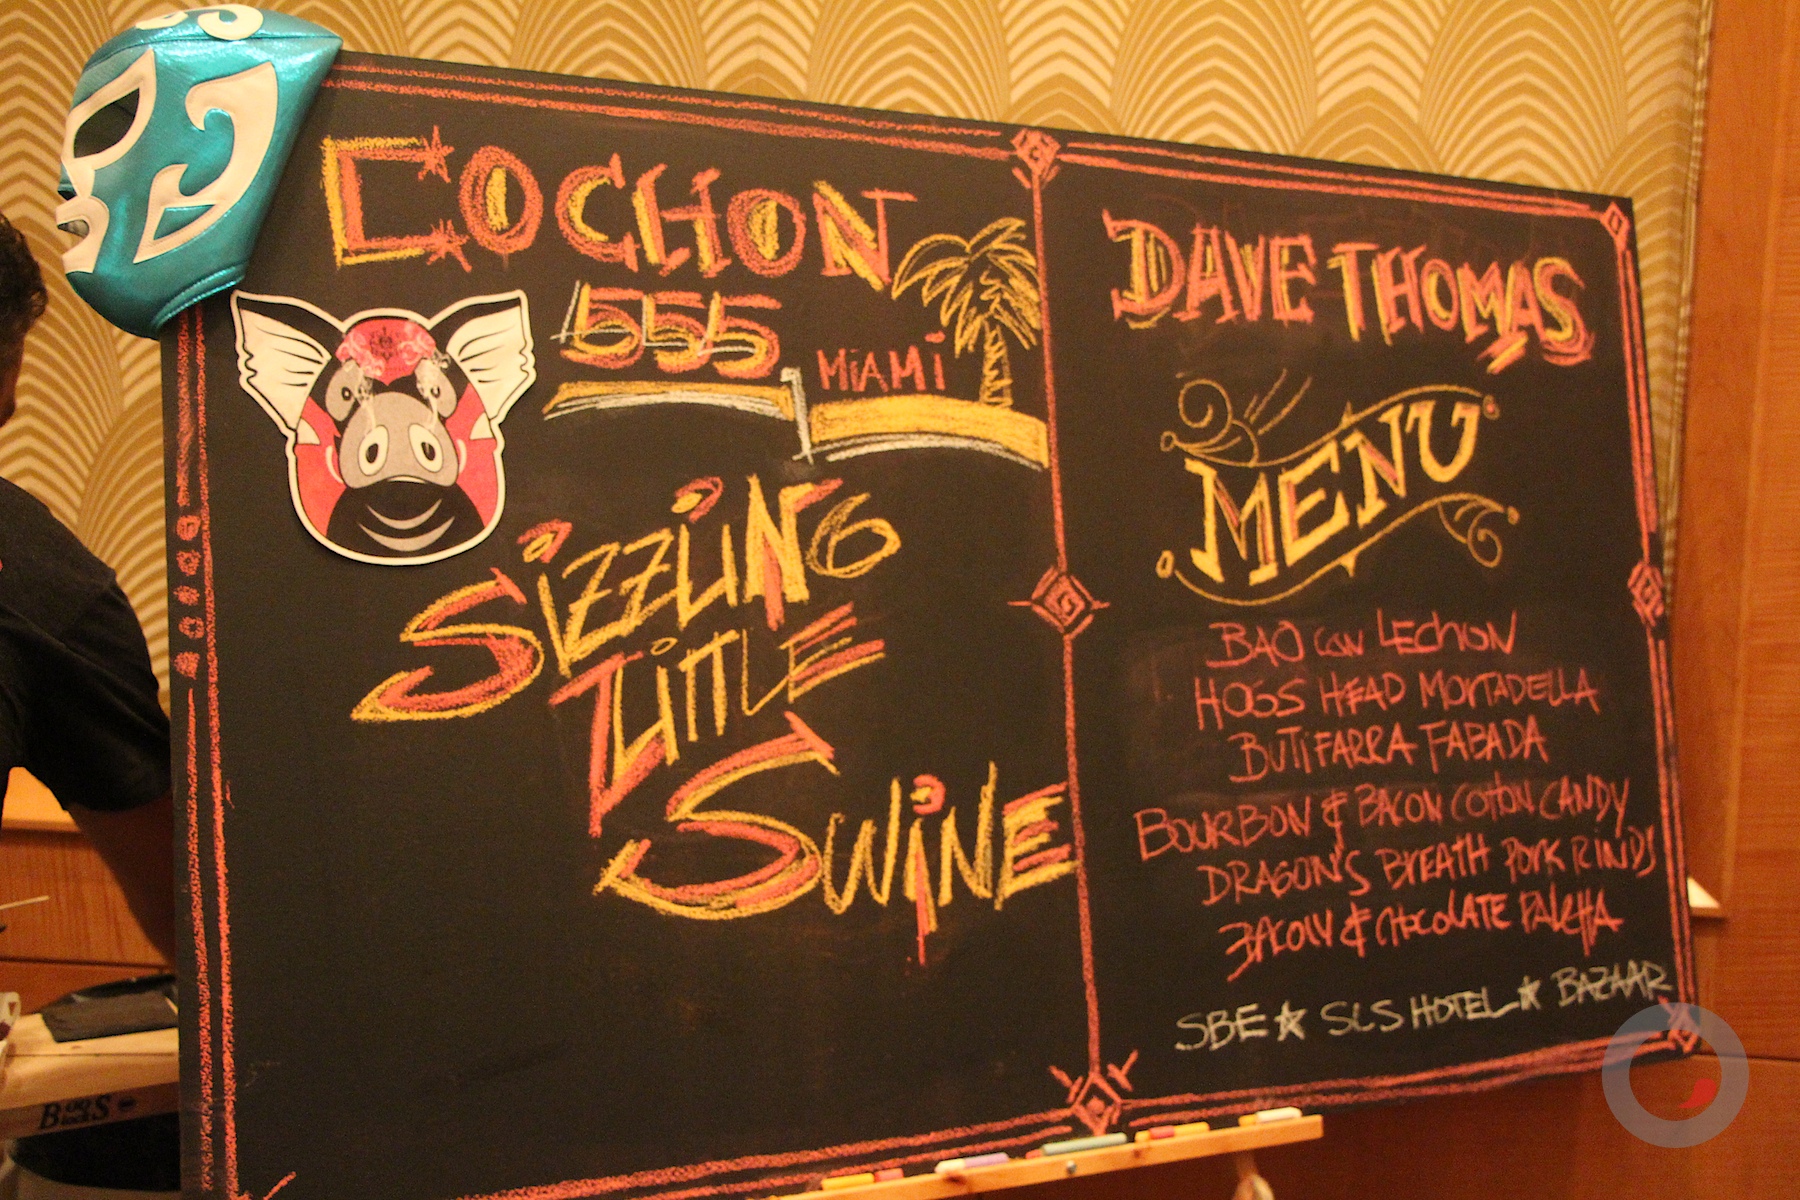 COCHON
555
MiAMi
SiZZLiNG
LiTTLE
SWiNE
DAVE THOMAS
MENU
BAO con LEChON
HOGS HEAD MORTADELLA
BUTiFARRA FABADA
BOURBON & BACON COTTON CANDY
DRAGON'S BREATH PORK RiNDS
BACON & CHOCOLATE PALCHA
SBE ☆ SLS HOTEL ★ BAZAAR